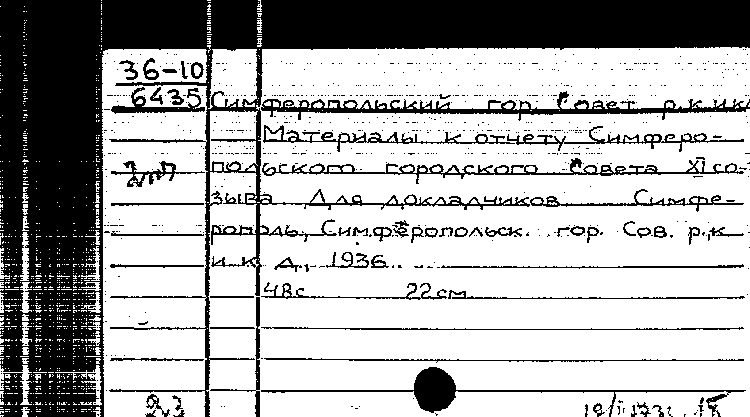 36-10
6435 Симферопольский гор. Совет р.к.и к
Материалы к отчету Симферо-
польского городского Совета XI со-
зыва Для докладчиков Симфе-
рополь, Симферопольск. гор. Сов. р.,к
и к. д., 1936.
48с 22 см